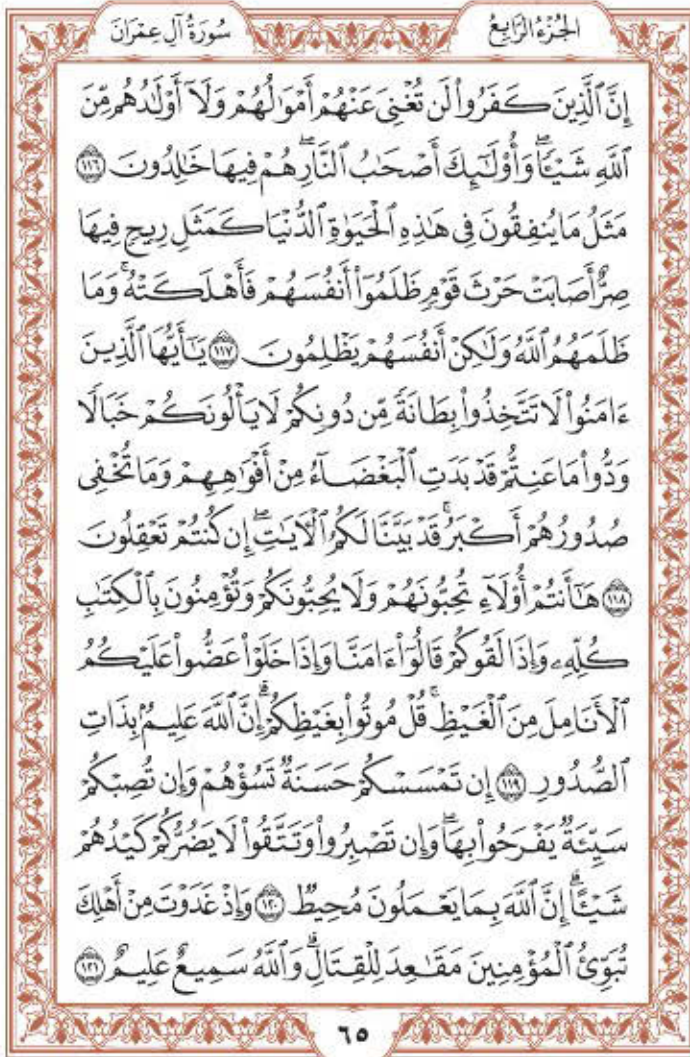 الجُزْءُ الرَّابِعُ
سُورَةُ آلِ عِمْرَانَ
إِنَّ ٱلَّذِينَ كَفَرُوا۟ لَن تُغْنِىَ عَنْهُمْ أَمْوَٰلُهُمْ وَلَآ أَوْلَٰدُهُم مِّنَ
ٱللَّهِ شَيْـًٔا ۖ وَأُو۟لَٰٓئِكَ أَصْحَٰبُ ٱلنَّارِ ۚ هُمْ فِيهَا خَٰلِدُونَ ١١٦
مَثَلُ مَا يُنفِقُونَ فِى هَٰذِهِ ٱلْحَيَوٰةِ ٱلدُّنْيَا كَمَثَلِ رِيحٍ فِيهَا
صِرٌّ أَصَابَتْ حَرْثَ قَوْمٍ ظَلَمُوٓا۟ أَنفُسَهُمْ فَأَهْلَكَتْهُ ۚ وَمَا
ظَلَمَهُمُ ٱللَّهُ وَلَٰكِنْ أَنفُسَهُمْ يَظْلِمُونَ ١١٧ يَٰٓأَيُّهَا ٱلَّذِينَ
ءَامَنُوا۟ لَا تَتَّخِذُوا۟ بِطَانَةً مِّن دُونِكُمْ لَا يَأْلُونَكُمْ خَبَالًا
وَدُّوا۟ مَا عَنِتُّمْ قَدْ بَدَتِ ٱلْبَغْضَآءُ مِنْ أَفْوَٰهِهِمْ وَمَا تُخْفِى
صُدُورُهُمْ أَكْبَرُ ۚ قَدْ بَيَّنَّا لَكُمُ ٱلْءَايَٰتِ ۖ إِن كُنتُمْ تَعْقِلُونَ
١١٨ هَٰٓأَنتُمْ أُو۟لَآءِ تُحِبُّونَهُمْ وَلَا يُحِبُّونَكُمْ وَتُؤْمِنُونَ بِٱلْكِتَٰبِ
كُلِّهِۦ وَإِذَا لَقُوكُمْ قَالُوٓا۟ ءَامَنَّا وَإِذَا خَلَوْا۟ عَضُّوا۟ عَلَيْكُمُ
ٱلْأَنَامِلَ مِنَ ٱلْغَيْظِ ۚ قُلْ مُوتُوا۟ بِغَيْظِكُمْ ۗ إِنَّ ٱللَّهَ عَلِيمٌۢ بِذَاتِ
ٱلصُّدُورِ ١١٩ إِن تَمْسَسْكُمْ حَسَنَةٌ تَسُؤْهُمْ وَإِن تُصِبْكُمْ
سَيِّئَةٌ يَفْرَحُوا۟ بِهَا ۖ وَإِن تَصْبِرُوا۟ وَتَتَّقُوا۟ لَا يَضُرُّكُمْ كَيْدُهُمْ
شَيْـًٔا ۗ إِنَّ ٱللَّهَ بِمَا يَعْمَلُونَ مُحِيطٌ ١٢٠ وَإِذْ غَدَوْتَ مِنْ أَهْلِكَ
تُبَوِّئُ ٱلْمُؤْمِنِينَ مَقَٰعِدَ لِلْقِتَالِ ۗ وَٱللَّهُ سَمِيعٌ عَلِيمٌ ١٢١
٦٥